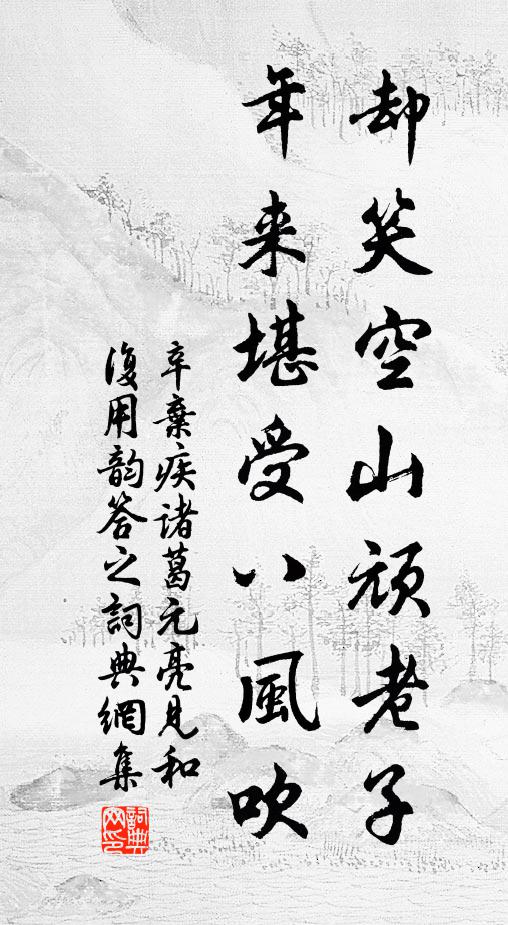 却笑空山頑老子
年来堪受八風吹
辛棄疾諸葛元亮見和
復用韵答之詞典網集
詞典網印